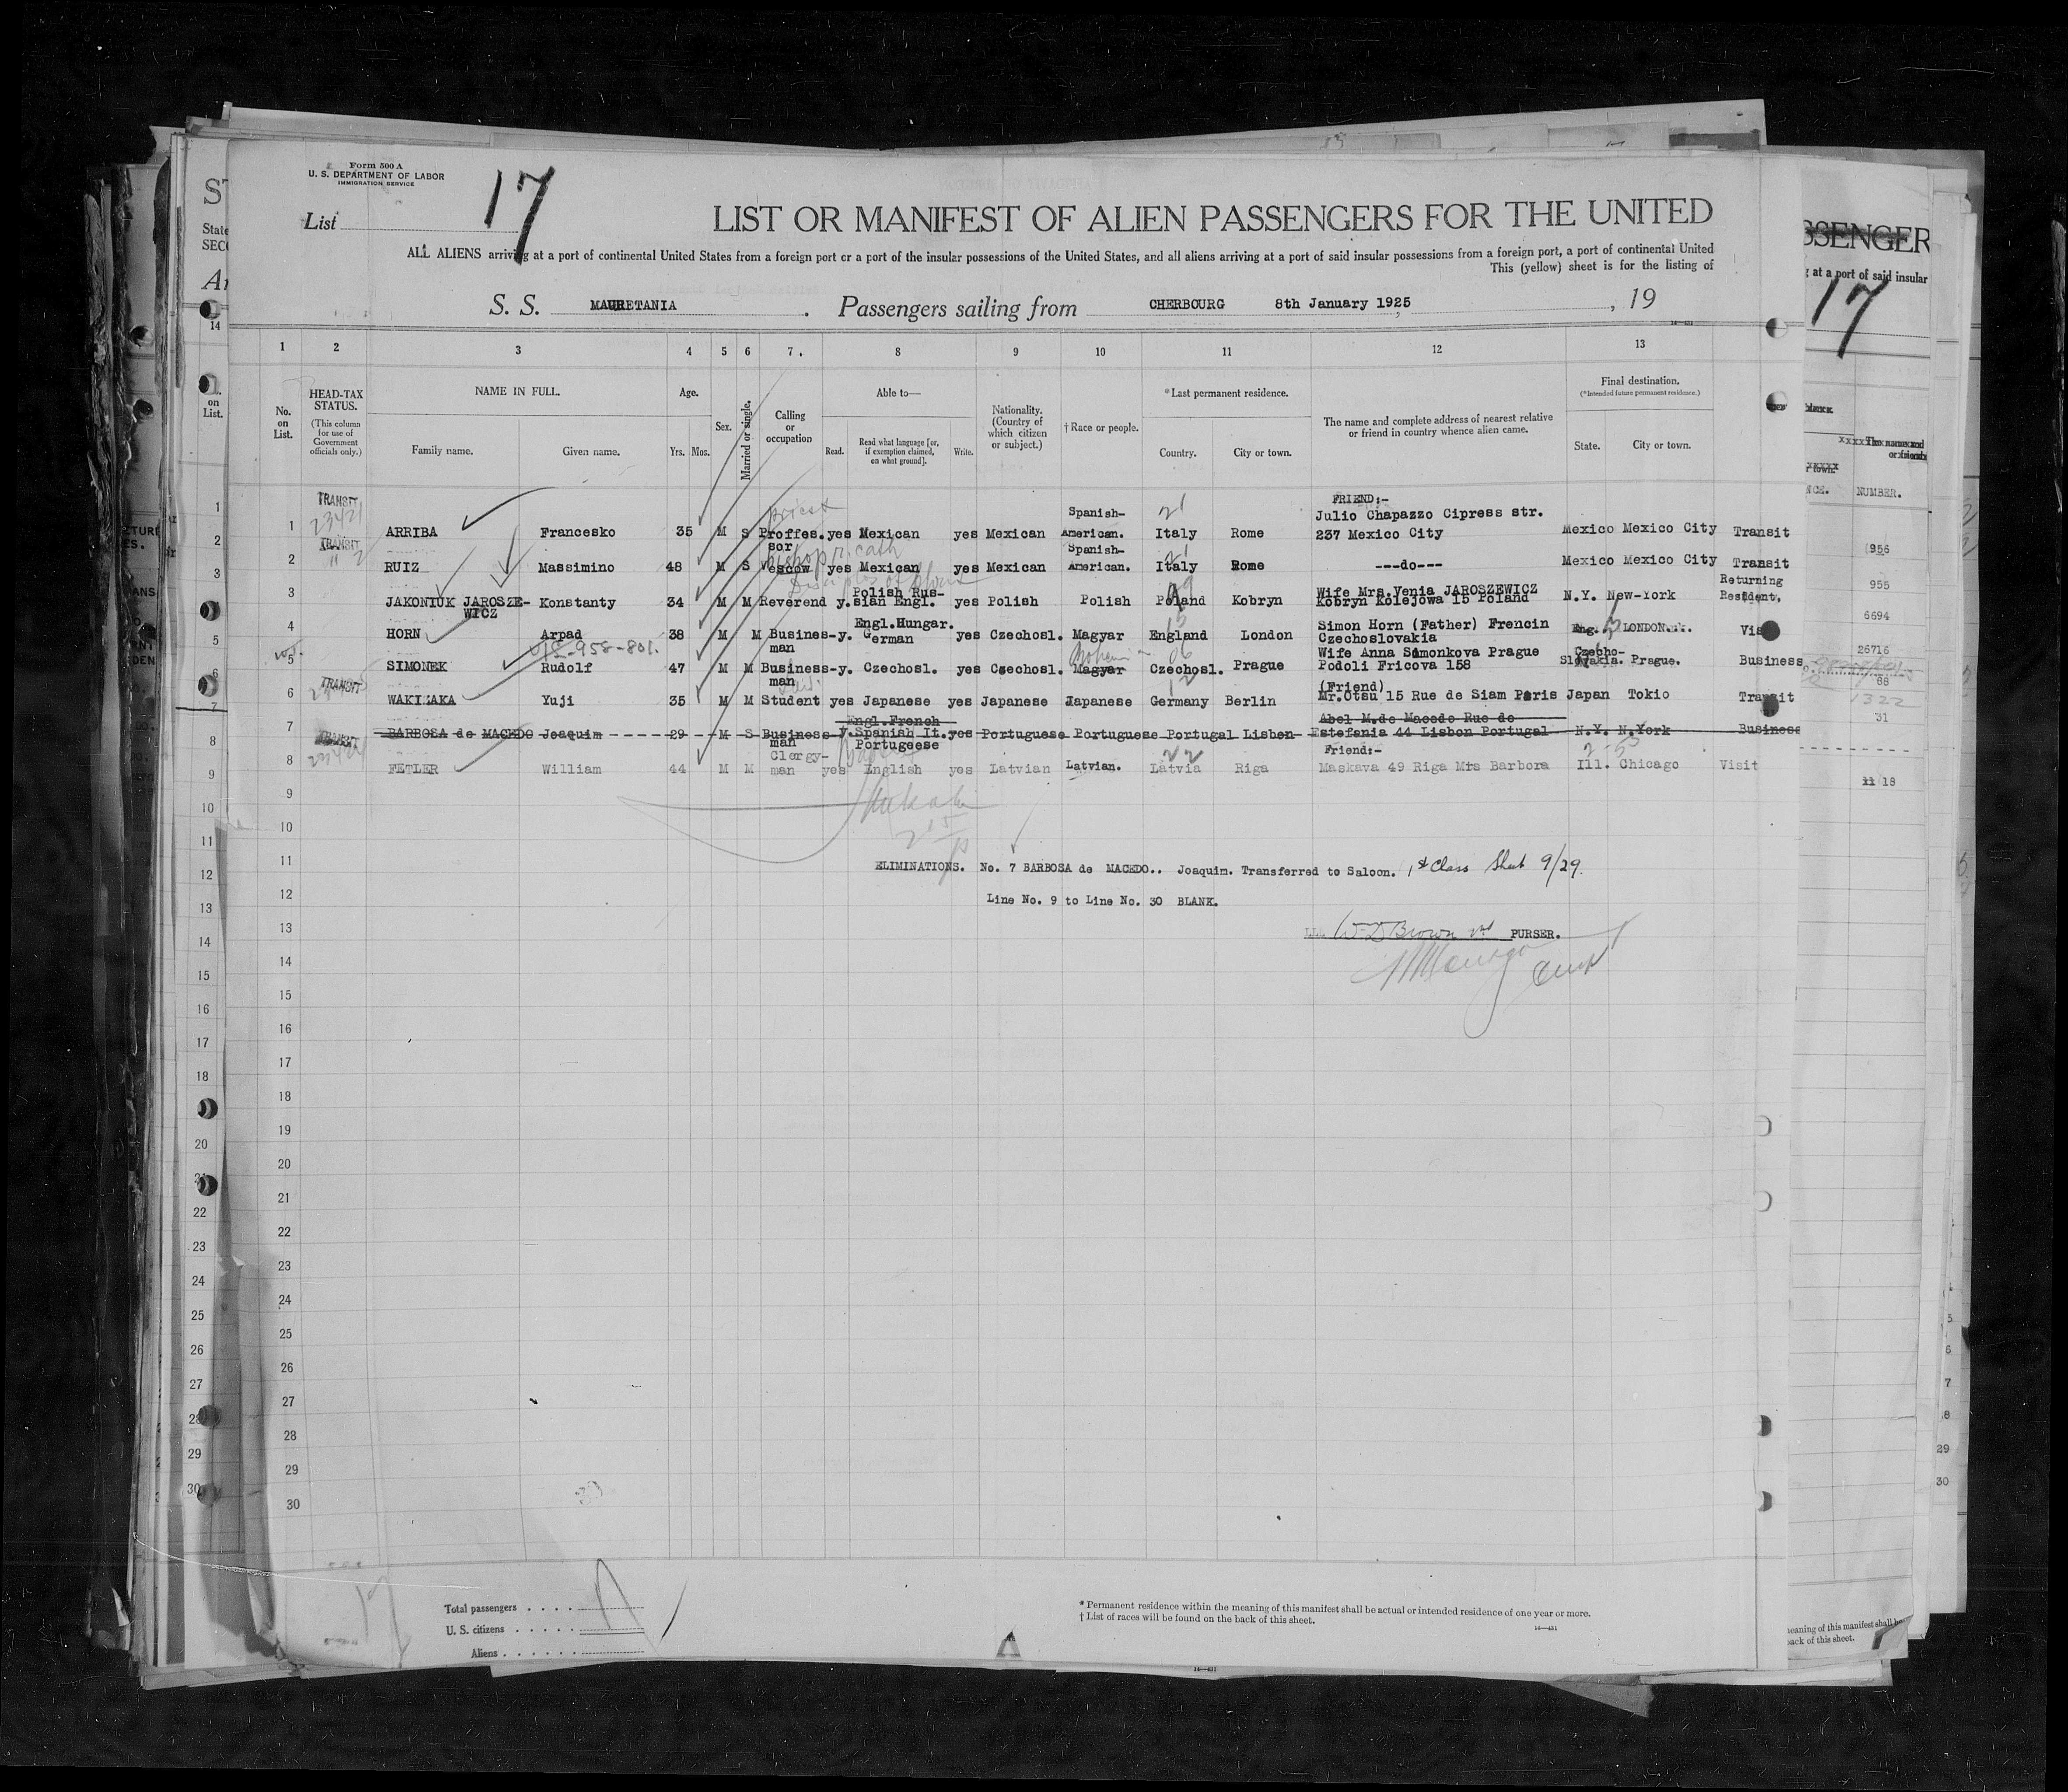 Form 500 A
U. S. DEPARTMENT OF LABOR
IMMIGRATION SERVICE
List 17
LIST OR MANIFEST OF ALIEN PASSENGERS FOR THE UNITED
ALL ALIENS arriving at a port of continental United States from a foreign port or a port of the insular possessions of the United States, and all aliens arriving at a port of said insular possessions from a foreign port, a port of continental United
This (yellow) sheet is for the listing of
S. S. MAURETANIA . Passengers sailing from CHERBOURG 8th January 1925 , 19
1 2 3 4 5 6 7. 8 9 10 11 12 13
No. on List.
HEAD-TAX STATUS.
(This column for use of Government officials only.)
NAME IN FULL.
Family name. Given name.
Age.
Yrs. Mos.
Sex.
Married or single.
Calling or occupation
Able to—
Read. Read what language [or, if exemption claimed, on what ground]. Write.
Nationality. (Country of which citizen or subject.)
† Race or people.
* Last permanent residence.
Country. City or town.
The name and complete address of nearest relative or friend in country whence alien came.
Final destination.
(* Intended future permanent residence.)
State. City or town.
TRANSIT priest Spanish- 21 FRIEND:-
Julio Chapazzo Cipress str.
1 ARRIBA Francesko 35 M S Proffes. yes Mexican yes Mexican American. Italy Rome 237 Mexico City Mexico Mexico City Transit
TRANSIT sor bishop r. cath Spanish- 21
2 RUIZ Massimino 48 M S Vescow yes Mexican yes Mexican American. Italy Rome ---do--- Mexico Mexico City Transit
Polish Rus- Wife Mrs.Venia JAROSZEWICZ Returning
3 JAKONIUK JAROSZE- Konstanty 34 M M Reverend y. sian Engl. yes Polish Polish Poland Kobryn Kobryn Kolejowa 15 Poland N.Y. New-York Resident.
WICZ
Engl.Hungar. Simon Horn (Father) Frencin
4 HORN Arpad 38 M M Busines- y. German yes Czechosl. Magyar England London Czechoslovakia Eng. LONDON
man
Wife Anna Simonkova Prague Czecho-
5 SIMONEK Rudolf 47 M M Business- y. Czechosl. yes Czechosl. Magyar Czechosl. Prague Podoli Fricova 158 Slovakia. Prague. Business
TRANSIT man (Friend)
6 WAKIZAKA Yuji 35 M M Student yes Japanese yes Japanese Japanese Germany Berlin Mr.Otsu 15 Rue de Siam Paris Japan Tokio Transit
Engl.French Abel M.de Macedo Rue de
7 BARBOSA de MACEDO Joaquim 29 M S Business y. Spanish It. yes Portuguese Portuguese Portugal Lisbon Estefania 44 Lisbon Portugal N.Y. N.York Business
man Portugeese
Clergy- 22 Friend:-
8 FETLER William 44 M M man yes English yes Latvian Latvian. Latvia Riga Maskava 49 Riga Mrs Barbora Ill. Chicago Visit
9
10
11
ELIMINATIONS. No. 7 BARBOSA de MACEDO.. Joaquim. Transferred to Saloon. 1st Class Sheet 9/29.
12
Line No. 9 to Line No. 30 BLANK.
13
W D Brown PURSER.
14
15
16
17
18
19
20
21
22
23
24
25
26
27
28
29
30
Total passengers
U. S. citizens
Aliens
* Permanent residence within the meaning of this manifest shall be actual or intended residence of one year or more.
† List of races will be found on the back of this sheet.
14—431
SSENGER
at a port of said insular
17
NUMBER.
956
955
6694
26716
68
1322
31
18